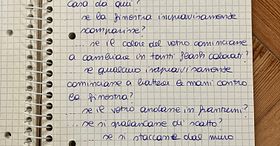 casa da qui?
se la finestra improvvisamente
scomparisse?
... se il colore del vetro cominciasse
a cambiare in tanti flash colorati?
se qualcuno improvvisamente
cominciasse a battere le mani contro
la finestra?
... se il vetro andasse in frantumi?
... se si spalancasse di scatto?
se si staccasse dal muro